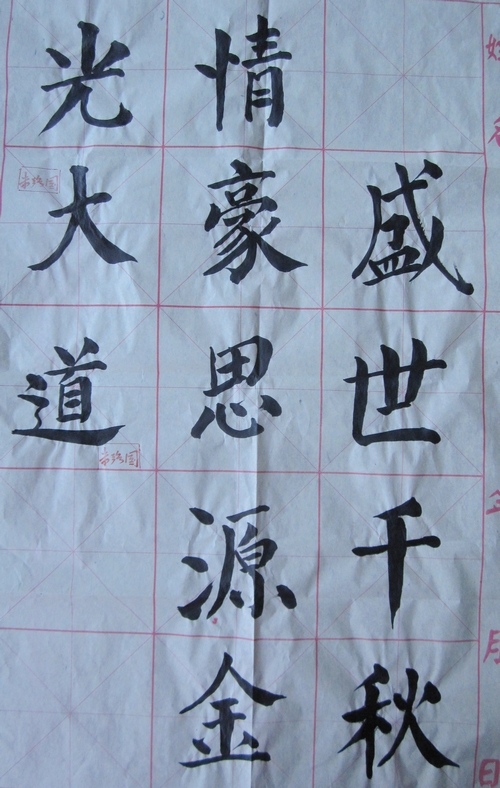 盛世千秋
情豪思源金
光大道